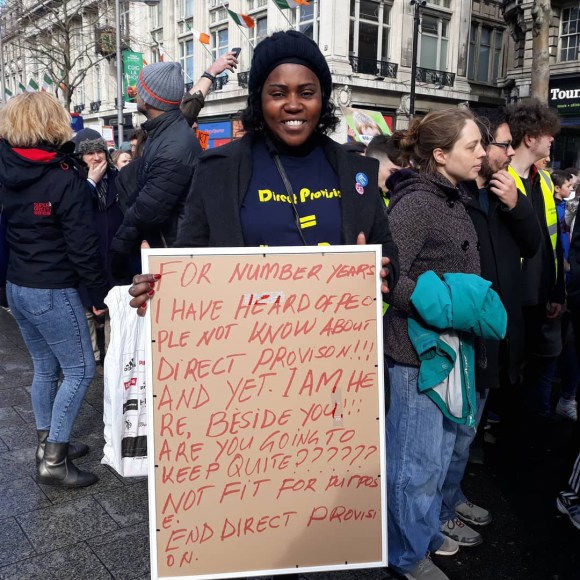 Tour
Direct Provision
=
FOR NUMBER YEARS
I HAVE HEARD OF PEO
PLE NOT KNOW ABOUT
DIRECT PROVISON!!!
AND YET. I AM HE
RE, BESIDE YOU!!!
ARE YOU GOING TO
KEEP QUITE??????
NOT FIT FOR PURPOS
E.
END DIRECT PROVISI
ON.